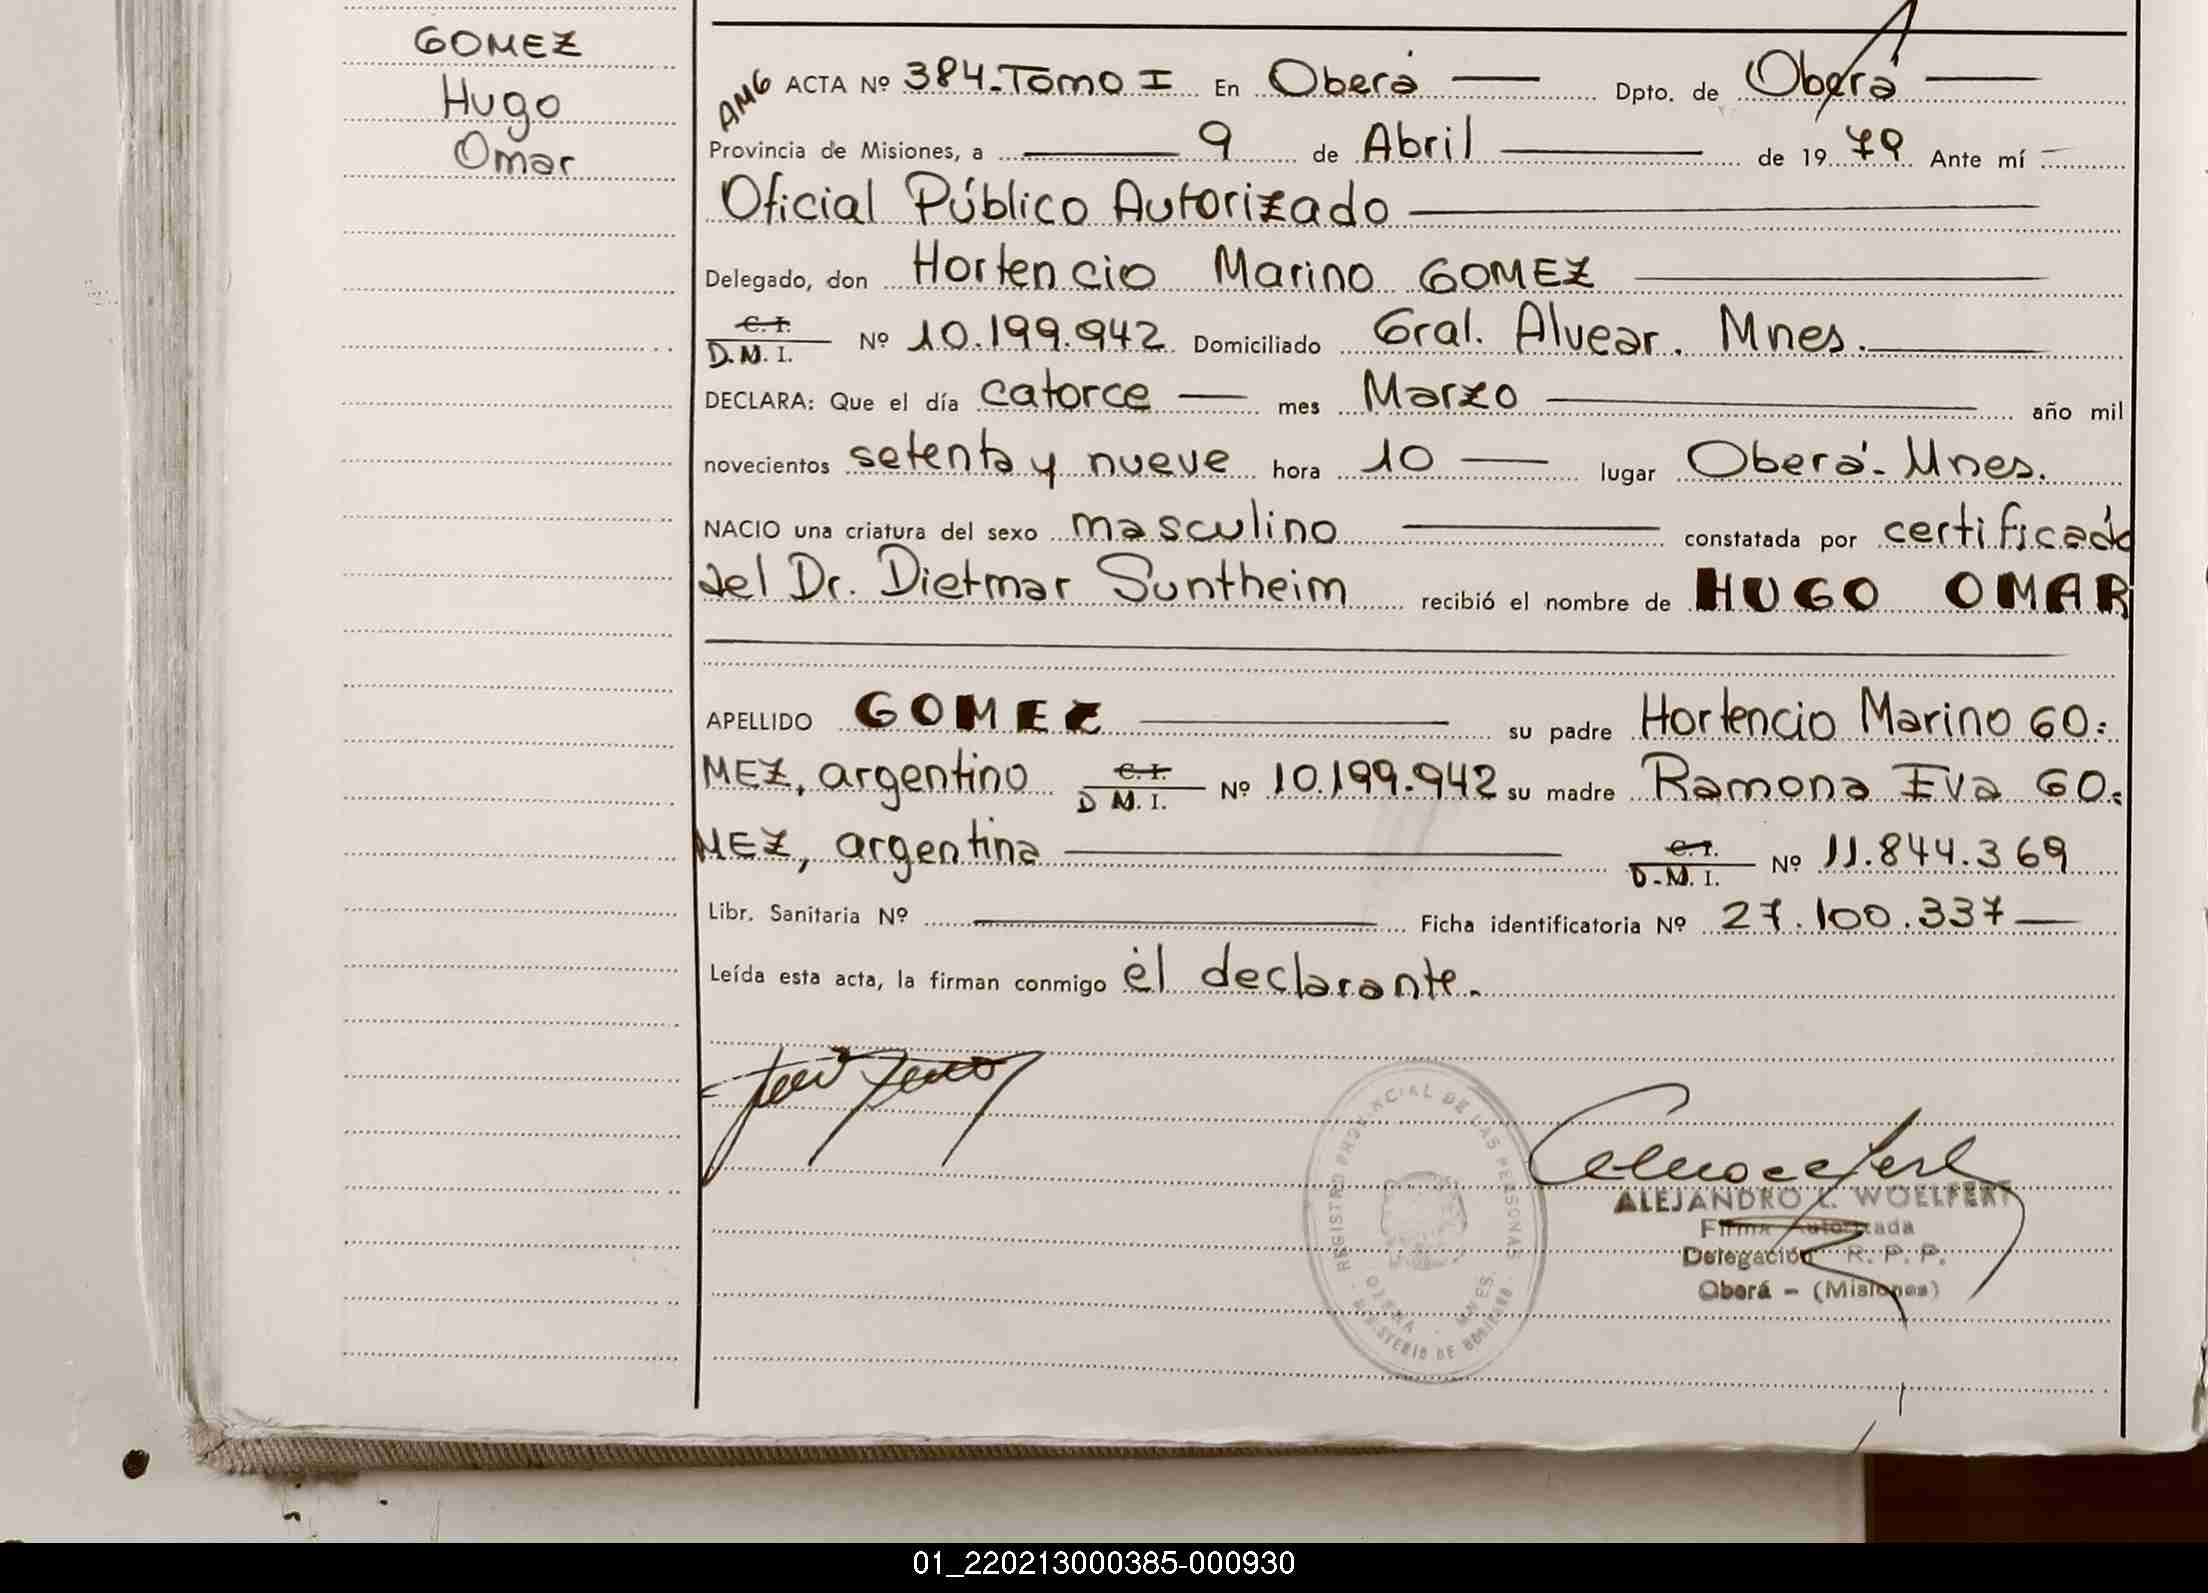 GOMEZ
Hugo
Omar
AMG ACTA Nº 384-Tomo I En Oberá Dpto. de Oberá
Provincia de Misiones, a 9 de Abril de 1979 Ante mí
Oficial Público Autorizado
Delegado, don Hortencio Marino GOMEZ
C. I.
D.N.I. Nº 10.199.942 Domiciliado Gral. Alvear. Mnes.
DECLARA: Que el día catorce mes Marzo año mil
novecientos setenta y nueve hora 10 lugar Oberá- Mnes.
NACIO una criatura del sexo masculino constatada por certificado
del Dr. Dietmar Suntheim recibió el nombre de HUGO OMAR
APELLIDO GOMEZ su padre Hortencio Marino GO=
MEZ, argentino C. I. D N. I. Nº 10.199.942 su madre Ramona Eva GO=
MEZ, argentina C. I. D.N. I. Nº 11.844.369
Libr. Sanitaria Nº Ficha identificatoria Nº 27.100.337
Leída esta acta, la firman conmigo él declarante.
REGISTRO PROVINCIAL DE LAS PERSONAS
OBERA MNES.
MINISTERIO DE GOBIERNO
ALEJANDRO L. WOELFERT
Firma Autorizada
Delegación R. P. P.
Oberá - (Misiones)
01_220213000385-000930